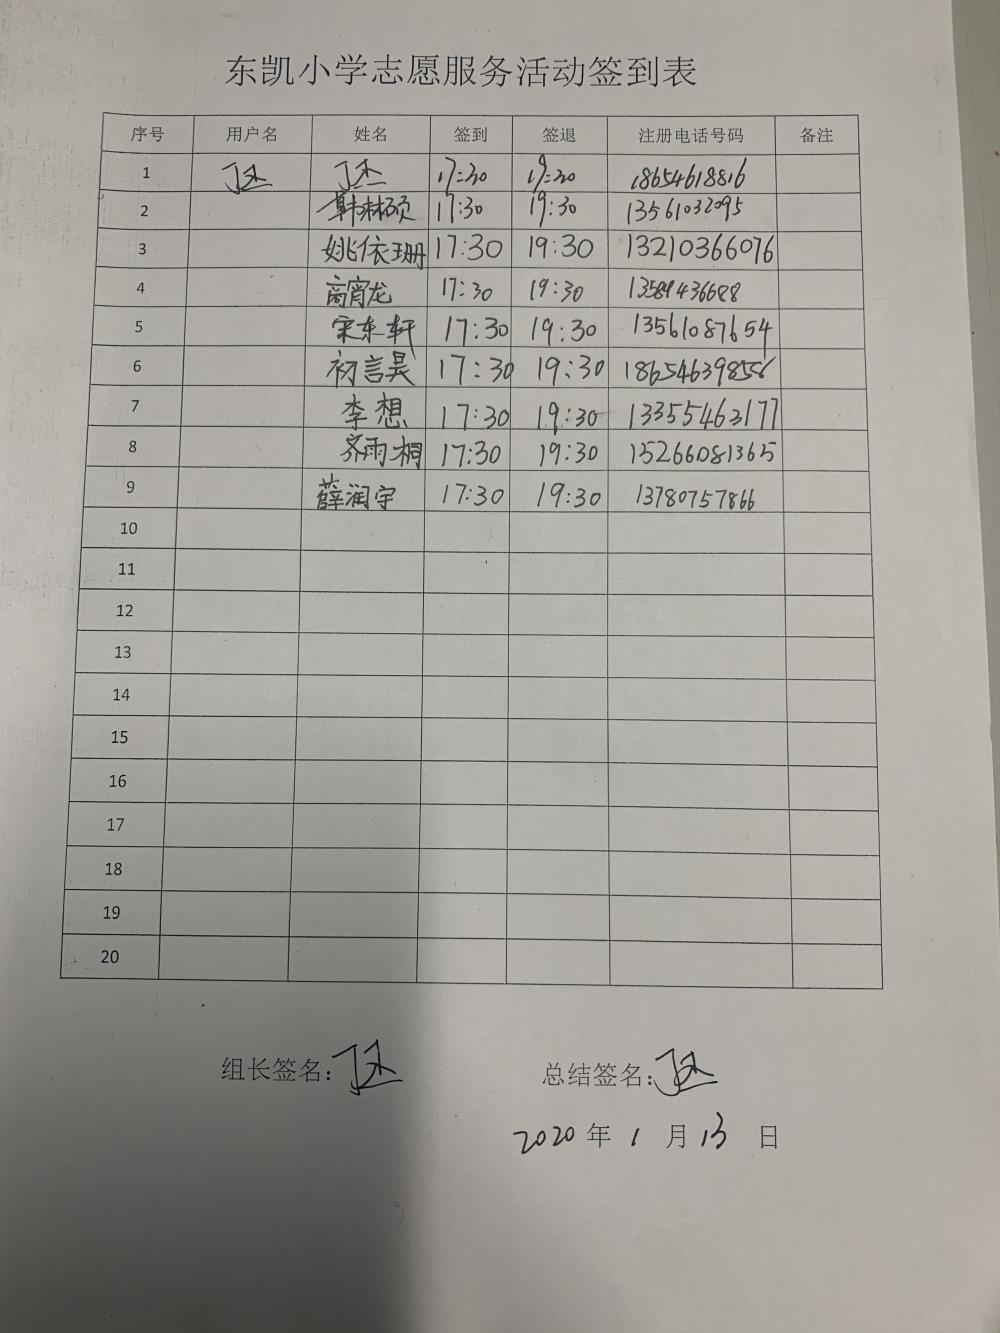 东凯小学志愿服务活动签到表
序号 用户名 姓名 签到 签退 注册电话号码 备注
1 丁杰 丁杰 17:30 19:30 18654618816
2 韩林硕 17:30 19:30 13561032095
3 姚依珊 17:30 19:30 13210366076
4 高宵龙 17:30 19:30 13589436688
5 宋东轩 17:30 19:30 13561087654
6 初言昊 17:30 19:30 18654639856
7 李想 17:30 19:30 13355463177
8 齐雨桐 17:30 19:30 15266081365
9 薛润宇 17:30 19:30 13780757866
10
11
12
13
14
15
16
17
18
19
20
组长签名：丁杰 总结签名：丁杰
2020年1月13日